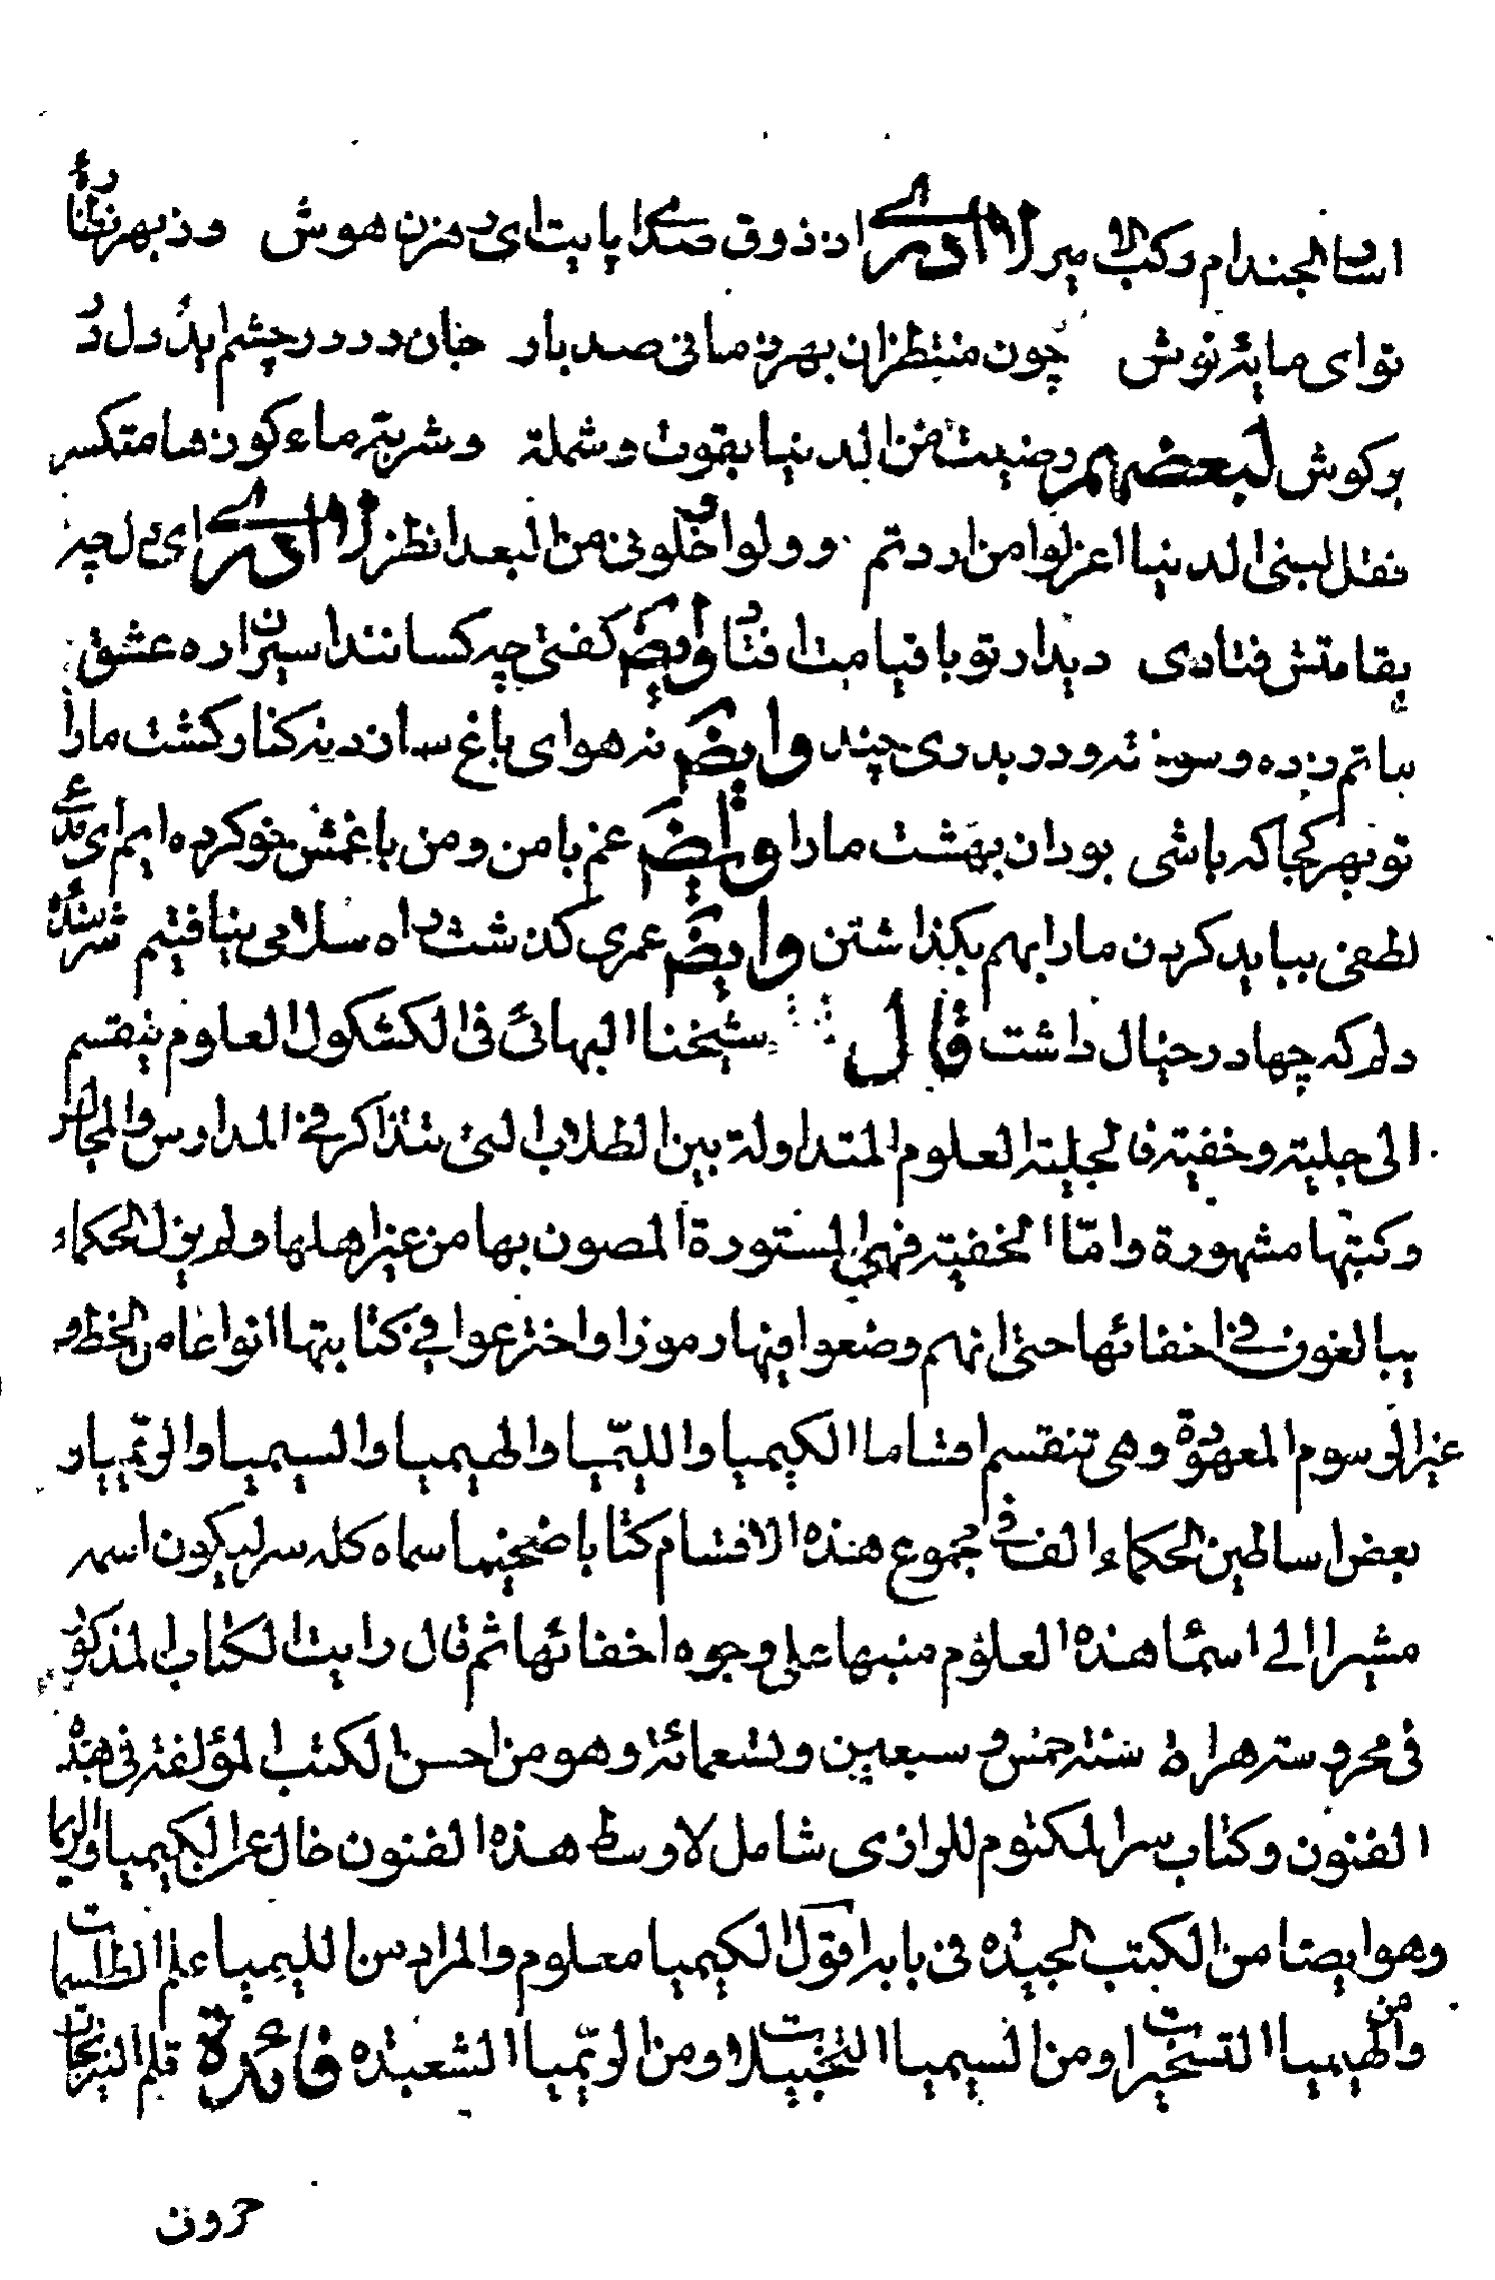 از ذوق صدا پایت ای رهزن هوش وز بهر نظاره
تو ای مایه نوش چون منتظران بهر زمانی صد بار جان در در چشم اید دل در
بر کوش لبعضهم رضیت من الدنیا بقوت وشملة وشربة ماء کوزها متکسر
فقل لبنی الدنیا اعزلوا من اردتم وولوا وخلونی من البعد انظر لا ادری ای
بقامتش فتادی دیدار تو با قیامت افتاد وایضا کفتی چه کسانند اسیران ره عشق
ماتم زده وسوز نه ودر بدری چند وایضا نه هوای باغ سازد نه کنار کشت مارا
تو بهر کجا که باشی بود ان بهشت مارا وایضا غم با من ومن با غمش خو کرده ایم ای مدعی
لطفی بباید کردن مارا بهم بکذاشتن وایضا عمری کذشت راه سلامی نیافتیم شرمنده
دلم که چها در خیال داشت قال شیخنا البهائی فی الکشکول العلوم ینقسم
الی جلیة وخفیة فالجلیة العلوم المتداولة بین الطلاب التی تتذاکر فی المدارس والمجالس
وکتبها مشهورة وامّا الخفیة فهی المستورة المصون بها من غیر اهلها ولم یزل الحکماء
یبالغون فی اخفائها حتی انهم وضعوا فیها رموزا واخترعوا فی کتابتها انواعا من الخطوط
غیر الرسوم المعهودة وهی تنقسم اقساما الکیمیا واللیمیا والهیمیا والسیمیا والریمیا و
بعض اساطین الحکماء الف فی مجموع هذه الاقسام کتابا ضخیما سماه کله سر لیکون اسمه
مشیرا الی اسما هذه العلوم منبها علی وجوه اخفائها ثم قال رایت الکتاب المذکور
فی محروسة هراة سنة خمس وسبعین وتسعمائة وهو من احسن الکتب المؤلفة فی هذه
الفنون وکتاب سر المکتوم للرازی شامل لاوسط هذه الفنون خال عن الکیمیا والریمیا
وهو ایضا من الکتب الجیده فی بابه اقول الکیمیا معلوم والمراد من اللیمیاء علم الطلسمات
ومن الهیمیا التسخیرات ومن السیمیا التخییلات ومن الریمیا الشعبذه فائدة قلم النیرنجات